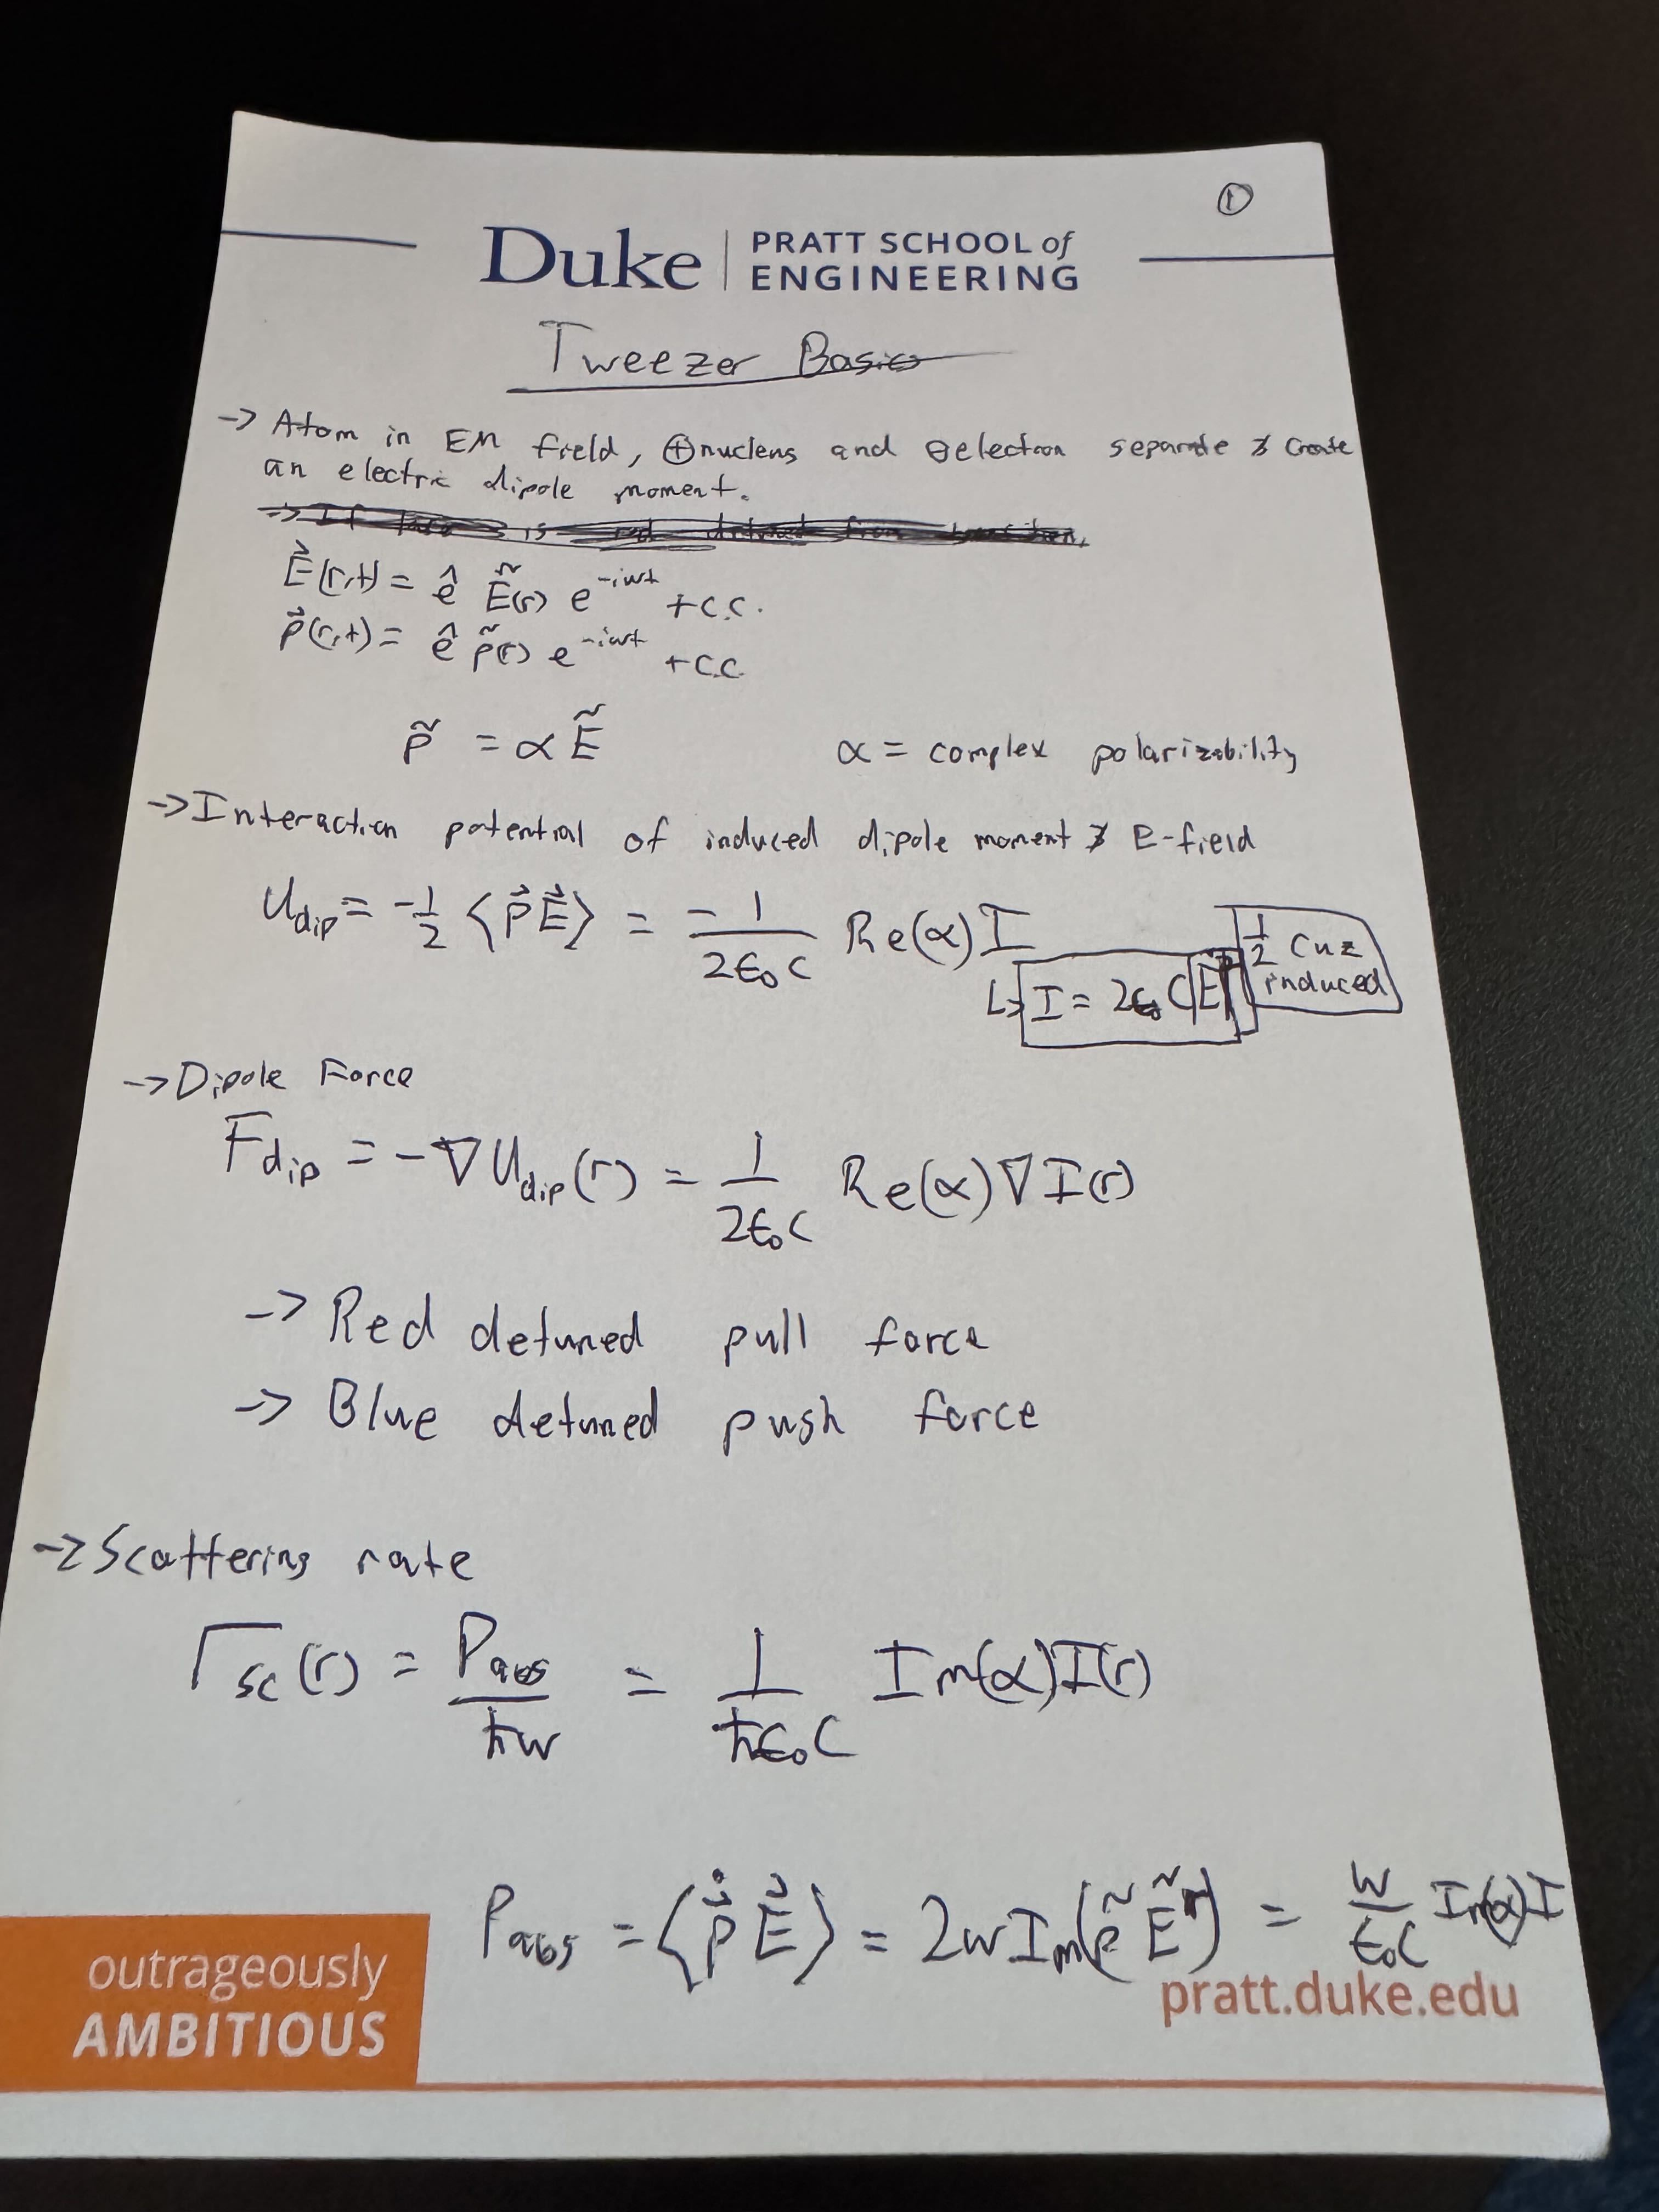 ①
Duke | PRATT SCHOOL of
ENGINEERING
Tweezer Basics
-> Atom in EM field, ⊕nucleus and ⊖electron separate & create
an electric dipole moment.
is red detuned from
E⃗(r,t) = ê Ẽ(r) e^{-iωt} + c.c.
p⃗(r,t) = ê p̃(r) e^{-iωt} + c.c
p̃ = α Ẽ α = complex polarizability
-> Interaction potential of induced dipole moment & E-field
U_dip = -1/2 <p⃗E⃗> = -1/(2ε₀c) Re(α)I
↳ I = 2ε₀c|Ẽ|² 1/2 cuz
induced
-> Dipole Force
F_dip = -∇U_dip(r) = 1/(2ε₀c) Re(α)∇I(r)
-> Red detuned pull force
-> Blue detuned push force
-> Scattering rate
Γ_sc(r) = P_abs/ħω = 1/(ħε₀c) Im(α)I(r)
P_abs = <ṗ⃗ E⃗> = 2ωIm(p̃ Ẽ*) = ω/(ε₀c) Im(α)I
outrageously
AMBITIOUS
pratt.duke.edu